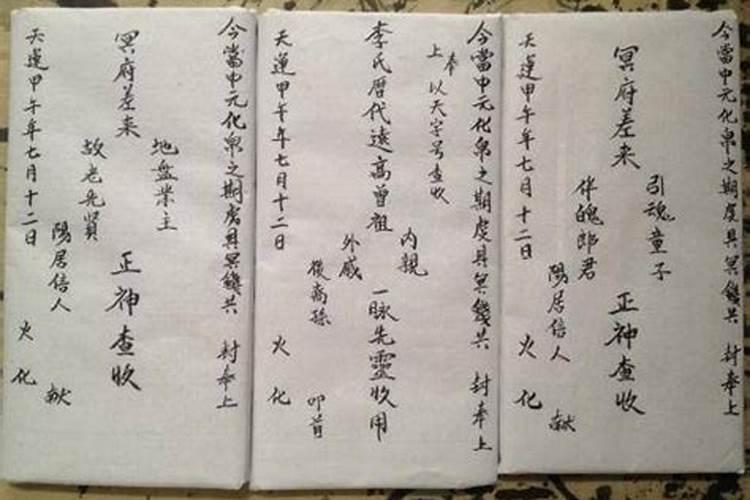 今當中元化帛之期虔具冥錢共 封奉上
冥府差来
引魂童子
伴魄郎君
正神查收
陽居信人 献
天運甲午年七月十二日 火化
今當中元化帛之期虔具冥錢共 封奉上
奉上 以天字号查收
李氏歷代遠高曾祖
內親
外戚
一脉先靈收用
後裔孫 叩首
天運甲午年七月十二日 火化
今當中元化帛之期虔具冥錢共 封奉上
冥府差来
地盘業主
故老先賢
正神查收
陽居信人 献
天運甲午年七月十二日 火化